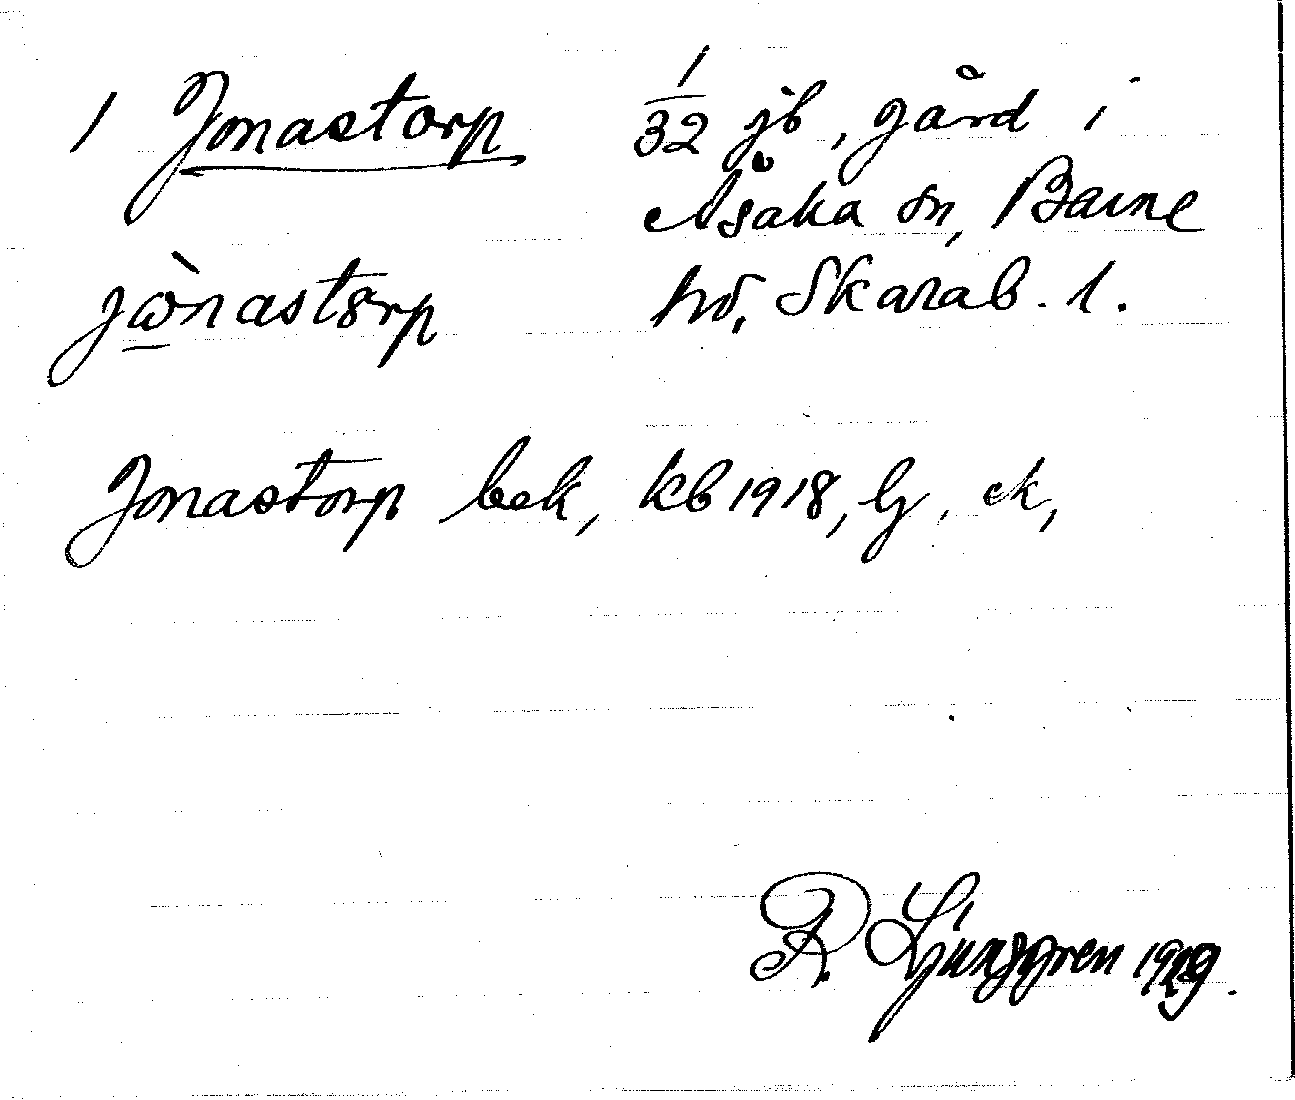 1 Jonastorp 1/32 jb, gård i
Åsaka sn, Barne
hd, Skarab. l.
jὼnastɔrp
Jonastorp bek, kb 1918, lj, ek,
R. Ljunggren 1919.